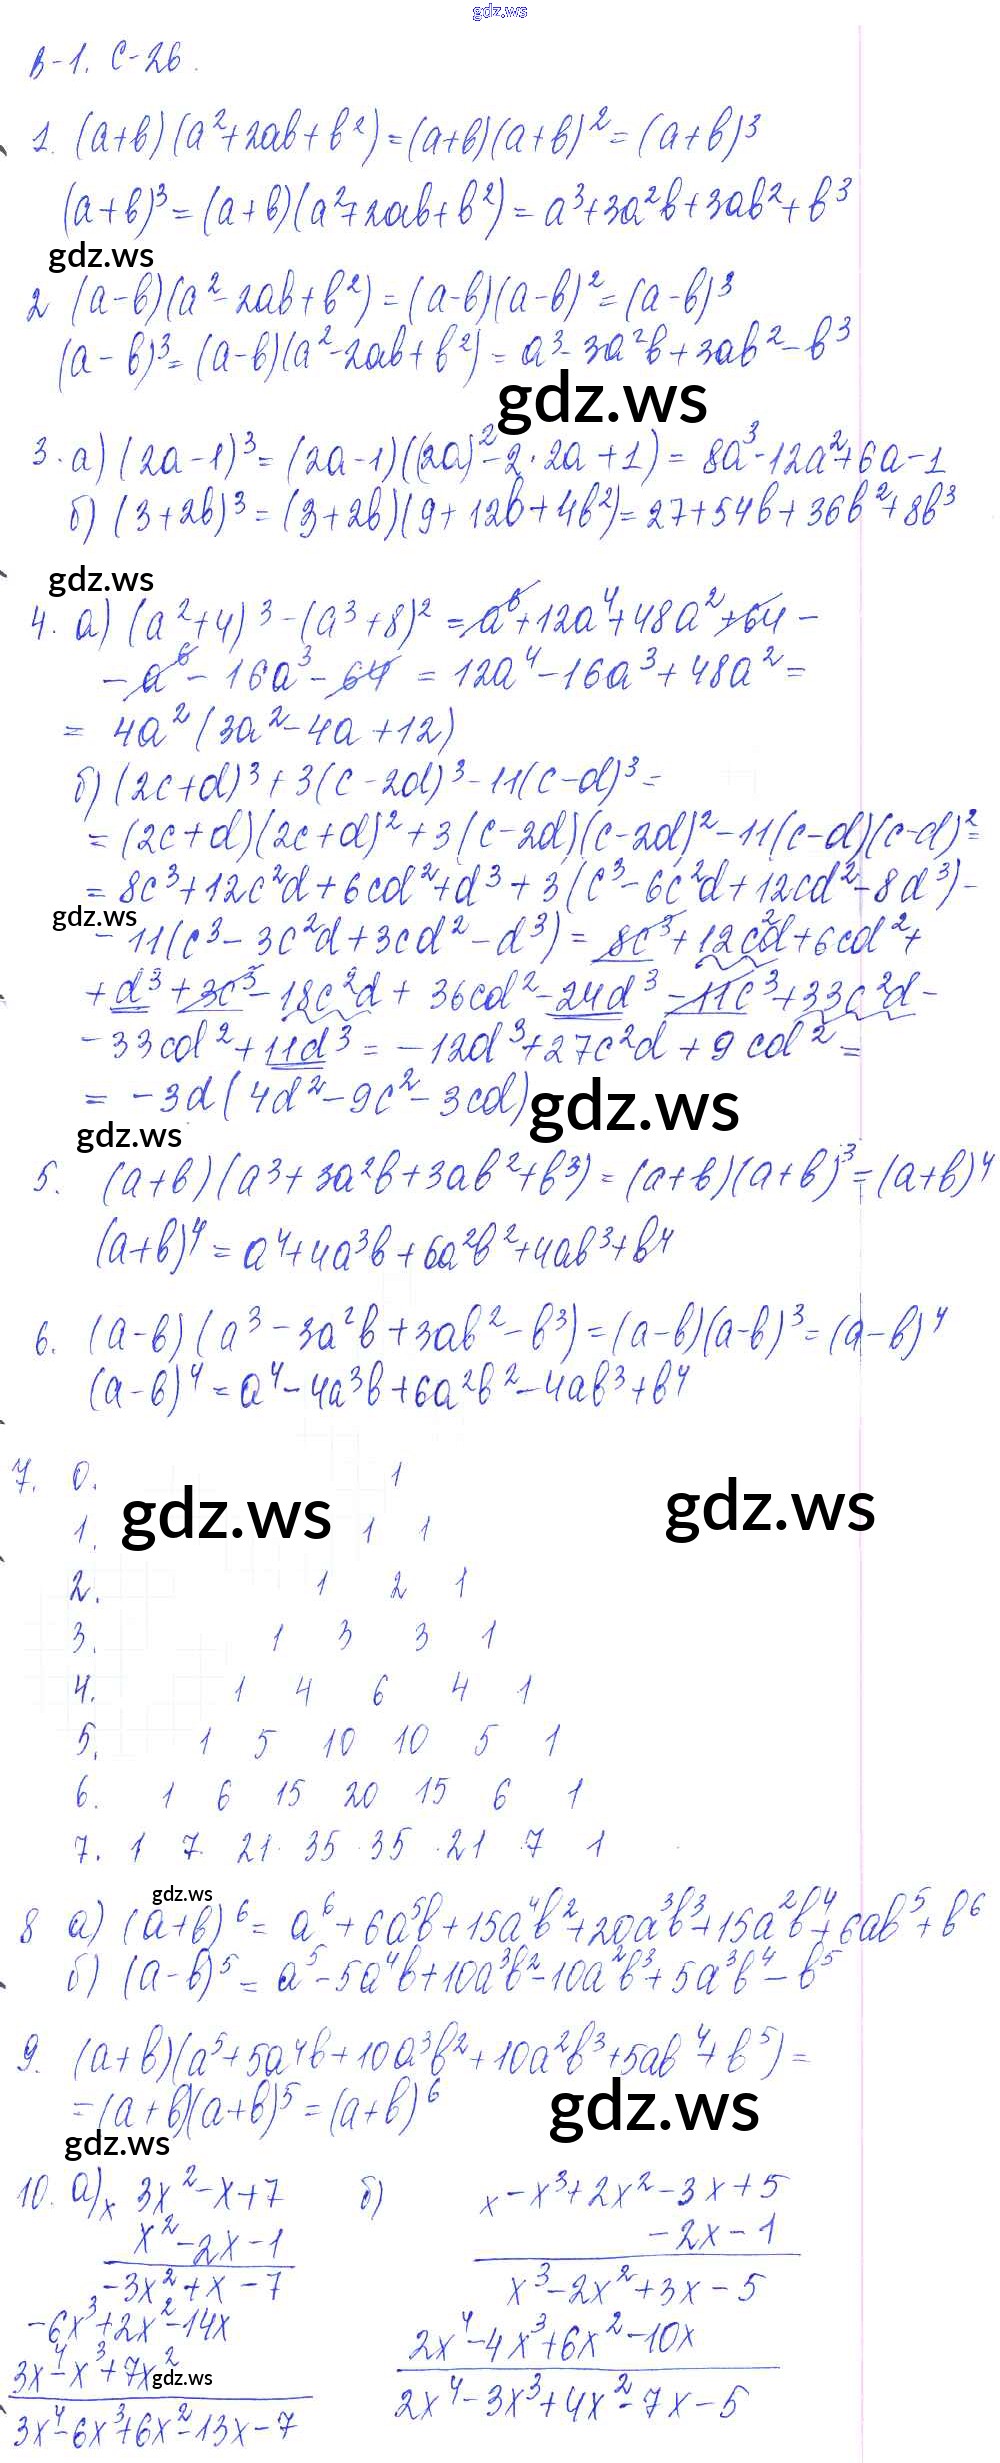 gdz.ws
В-1. С-26.
1. (a+b)(a²+2ab+b²)=(a+b)(a+b)²=(a+b)³
(a+b)³=(a+b)(a²+2ab+b²)=a³+3a²b+3ab²+b³
gdz.ws
2 (a-b)(a²-2ab+b²)=(a-b)(a-b)²=(a-b)³
(a-b)³=(a-b)(a²-2ab+b²)=a³-3a²b+3ab²-b³
gdz.ws
3. а) (2a-1)³=(2a-1)((2a)²-2·2a+1)=8a³-12a²+6a-1
б) (3+2b)³=(3+2b)(9+12b+4b²)=27+54b+36b²+8b³
gdz.ws
4. а) (a²+4)³-(a³+8)²=a⁶+12a⁴+48a²+64-
-a⁶-16a³-64=12a⁴-16a³+48a²=
= 4a²(3a²-4a+12)
б) (2c+d)³+3(c-2d)³-11(c-d)³=
=(2c+d)(2c+d)²+3(c-2d)(c-2d)²-11(c-d)(c-d)²=
=8c³+12c²d+6cd²+d³+3(c³-6c²d+12cd²-8d³)-
gdz.ws
-11(c³-3c²d+3cd²-d³)=8c³+12c²d+6cd²+
+d³+3c³-18c²d+36cd²-24d³-11c³+33c²d-
-33cd²+11d³=-12d³+27c²d+9cd²=
= -3d(4d²-9c²-3cd)
gdz.ws
gdz.ws
5. (a+b)(a³+3a²b+3ab²+b³)=(a+b)(a+b)³=(a+b)⁴
(a+b)⁴=a⁴+4a³b+6a²b²+4ab³+b⁴
6. (a-b)(a³-3a²b+3ab²-b³)=(a-b)(a-b)³=(a-b)⁴
(a-b)⁴=a⁴-4a³b+6a²b²-4ab³+b⁴
7. 0. 1
gdz.ws gdz.ws
1. 1 1
2. 1 2 1
3. 1 3 3 1
4. 1 4 6 4 1
5. 1 5 10 10 5 1
6. 1 6 15 20 15 6 1
7. 1 7 21 35 35 21 7 1
gdz.ws
8 а) (a+b)⁶=a⁶+6a⁵b+15a⁴b²+20a³b³+15a²b⁴+6ab⁵+b⁶
б) (a-b)⁵=a⁵-5a⁴b+10a³b²-10a²b³+5a³b⁴-b⁵
9. (a+b)(a⁵+5a⁴b+10a³b²+10a²b³+5ab⁴+b⁵)=
=(a+b)(a+b)⁵=(a+b)⁶
gdz.ws
gdz.ws
10. а) x 3x²-x+7
x²-2x-1
-3x²+x-7
-6x³+2x²-14x
3x⁴-x³+7x²
gdz.ws
3x⁴-6x³+6x²-13x-7
б) x -x³+2x²-3x+5
-2x-1
x³-2x²+3x-5
2x⁴-4x³+6x²-10x
2x⁴-3x³+4x²-7x-5